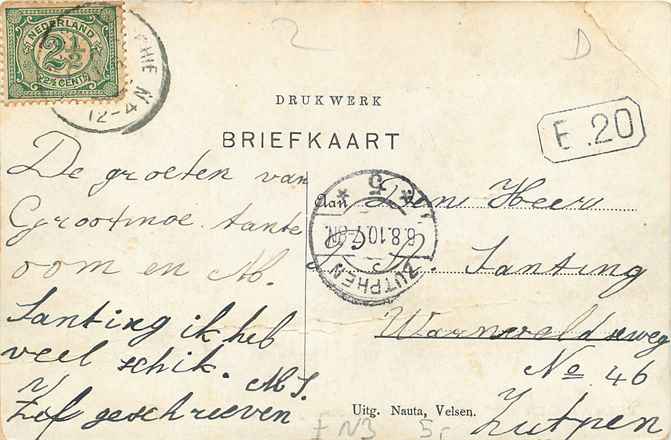 NEDERLAND
2½
2½ CENT
12-4 N
2
D
DRUKWERK
BRIEFKAART
E.20
De groeten van
Grootmoe. tante
oom en M.
Santing ik heb
veel schik. M S.
Zelf geschreeven
Aan Den Heer
Santing
Warnsveldseweg
No 46
Zutpen
ZUTPHEN
6.8.10.7-8N.
5
Uitg. Nauta, Velsen.